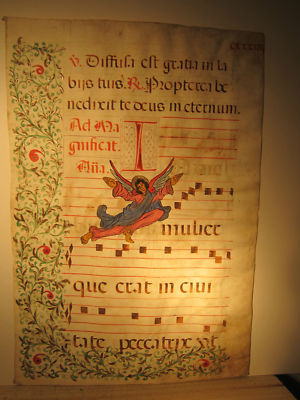 ℣. Diffusa est gratia in la
bijs tuis. ℟. Propterea be
nedixit te deus in eternum.
Ad Ma
gnificat.
Aña.
I
mulier
que erat in ciui
tate peccatrix vt